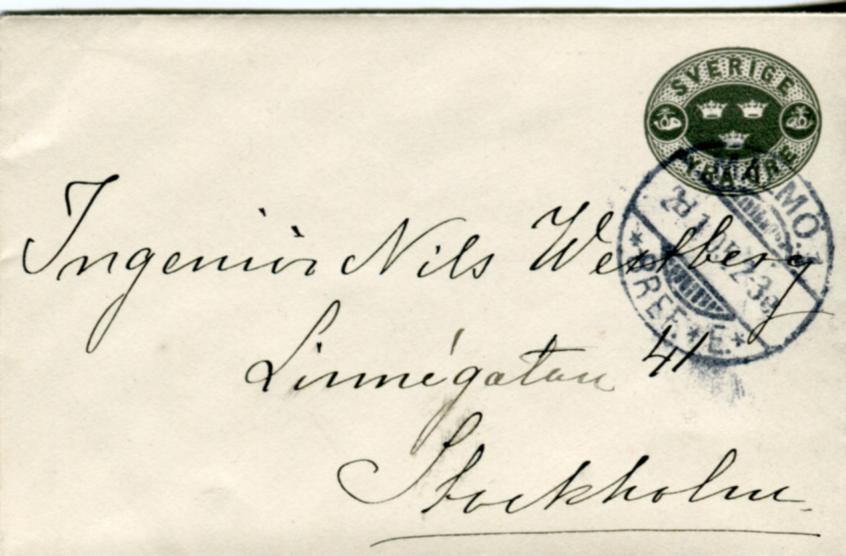 SVERIGE
FYRA ÖRE
MALMÖ.1
BREF. * E. *
Ingeniör Nils Westberg
Linnégatan 41
Stockholm